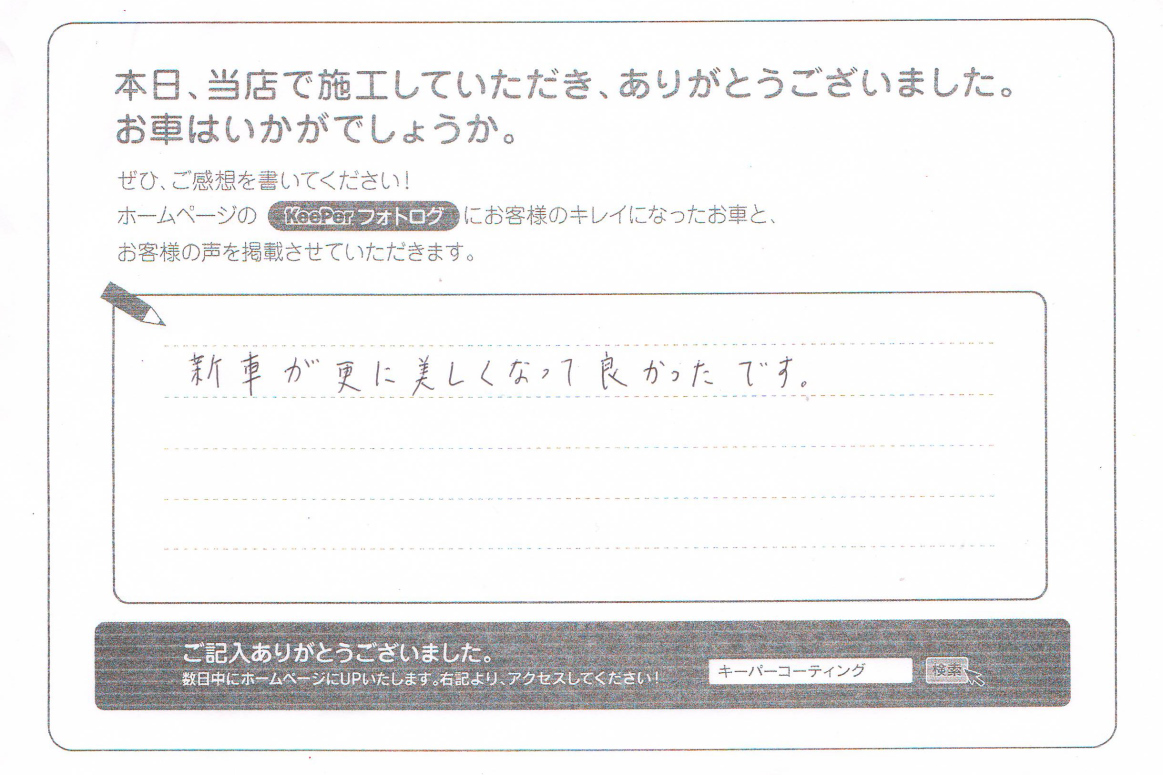 本日、当店で施工していただき、ありがとうございました。
お車はいかがでしょうか。
ぜひ、ご感想を書いてください!
ホームページの KeePer フォトログ にお客様のキレイになったお車と、
お客様の声を掲載させていただきます。
新車が更に美しくなって良かったです。
ご記入ありがとうございました。
数日中にホームページにUPいたします。右記より、アクセスしてください!
キーパーコーティング 検索